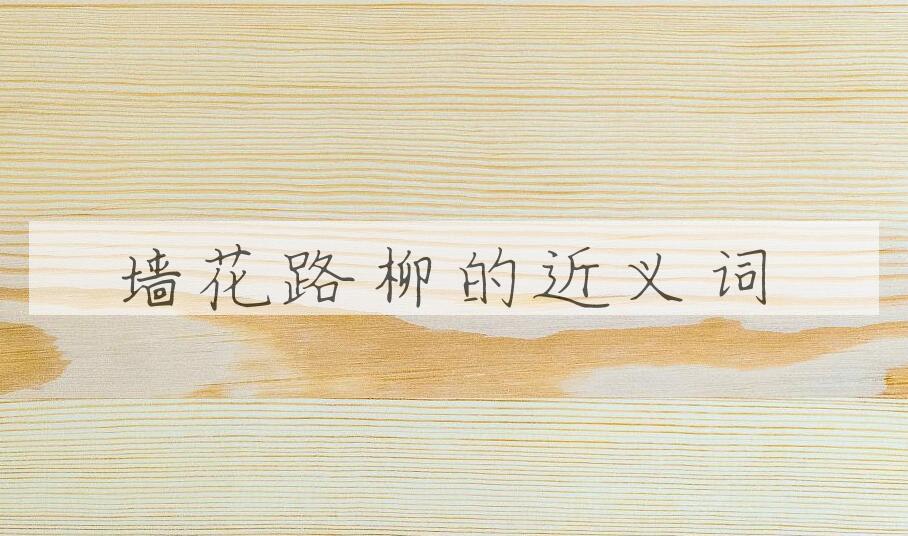 墙花路柳的近义词